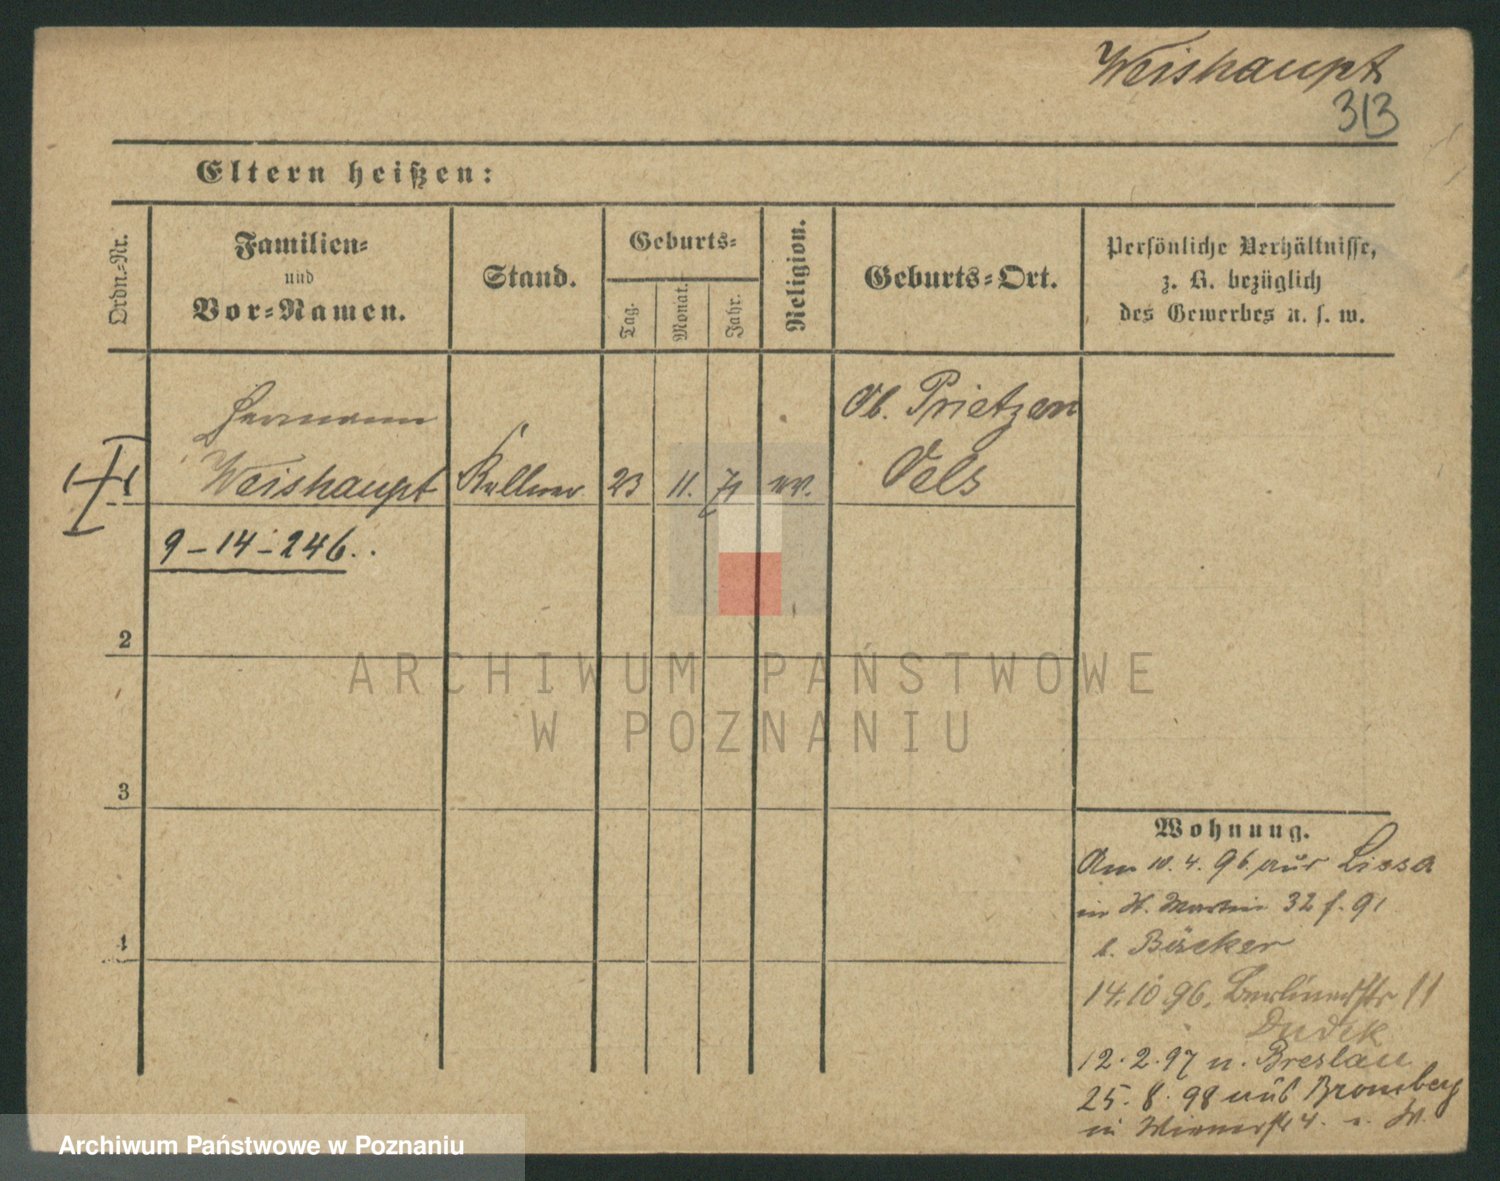 Weishaupt
313
Eltern heißen:
Ordn.-Nr.
Familien-
und
Vor-Namen.
Stand.
Geburts-
Tag.
Monat.
Jahr.
Religion.
Geburts-Ort.
Persönliche Verhältnisse,
z. B. bezüglich
des Gewerbes u. s. w.
Hermann
Weishaupt
Kellner
23
11.
71
Ob. Prietzen
Oels
9-14-246..
2
3
4
ARCHIWUM PAŃSTWOWE
W POZNANIU
Wohnung.
Am 10.4.96 aus Lissa
in St. Martin 32 f. 91
b. Bäcker
14.10.96. Berlinerstr 11
Dudek
12.2.97 n. Breslau
25.8.98 aus Bromberg
in Wienerstr 4.
Archiwum Państwowe w Poznaniu